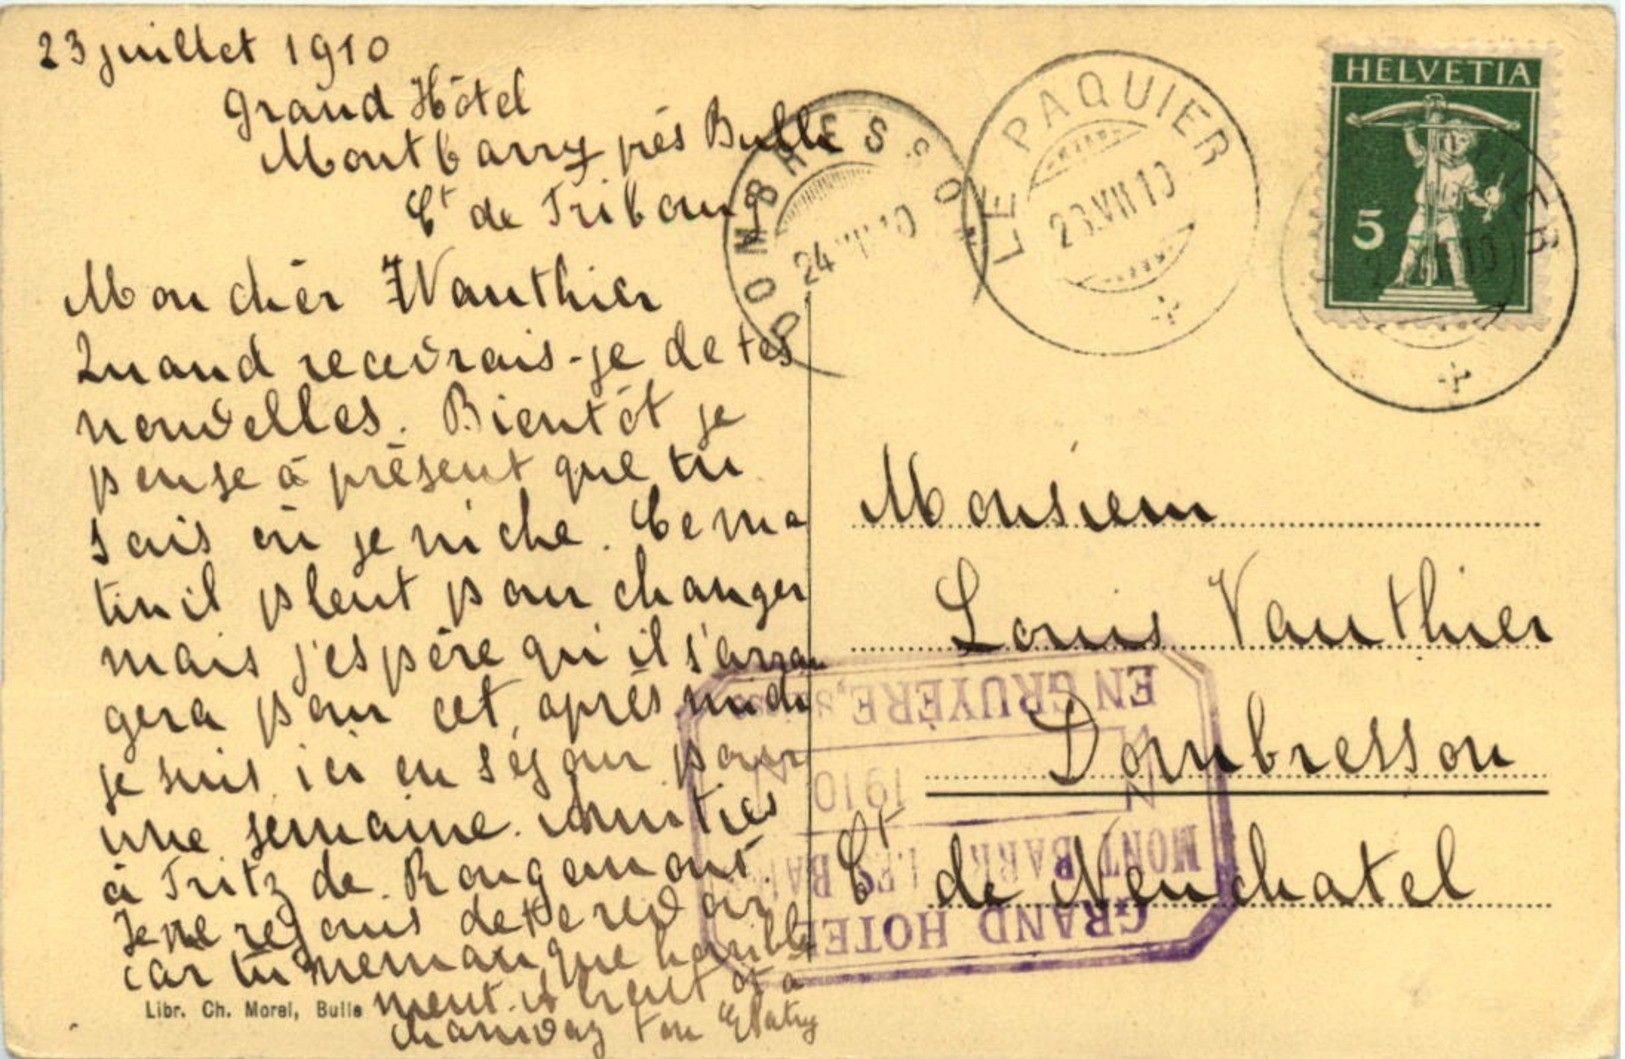 23 juillet 1910
Grand Hôtel
Montbarry près Bulle
Ct de Fribourg
Mon chèr Wauthier
Quand recevrais-je de tes
nouvelles. Bientôt je
pense à présent que tu
sais où je niche. Ce ma
tin il pleut pour changer
mais j'espère qu'il s'arran
gera pour cet après midi
je suis ici en séjour pour
une semaine. Amitiés
à Fritz de Rougemont.
Je me rejouis de te revoir
car tu me manque horrible
ment. A bientôt à
ton
Libr. Ch. Morel, Bulle
DOMBRESSON
24 VII 10
LE PAQUIER
23.VII 10
HELVETIA
5
Monsieur
Louis Vauthier
Dombresson
Ct de Neuchatel
GRAND HOTEL
MONT BARRY LES BAINS
1910
EN GRUYÈRE, SUISSE